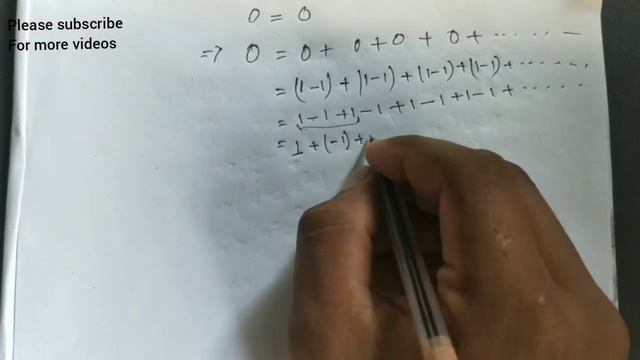 Please subscribe
For more videos
0 = 0
=> 0 = 0 + 0 + 0 + 0 + ......
= (1-1) + (1-1) + (1-1) + (1-1) + ......
= 1 - 1 + 1 - 1 + 1 - 1 + 1 - 1 + ......
= 1 + (-1) +